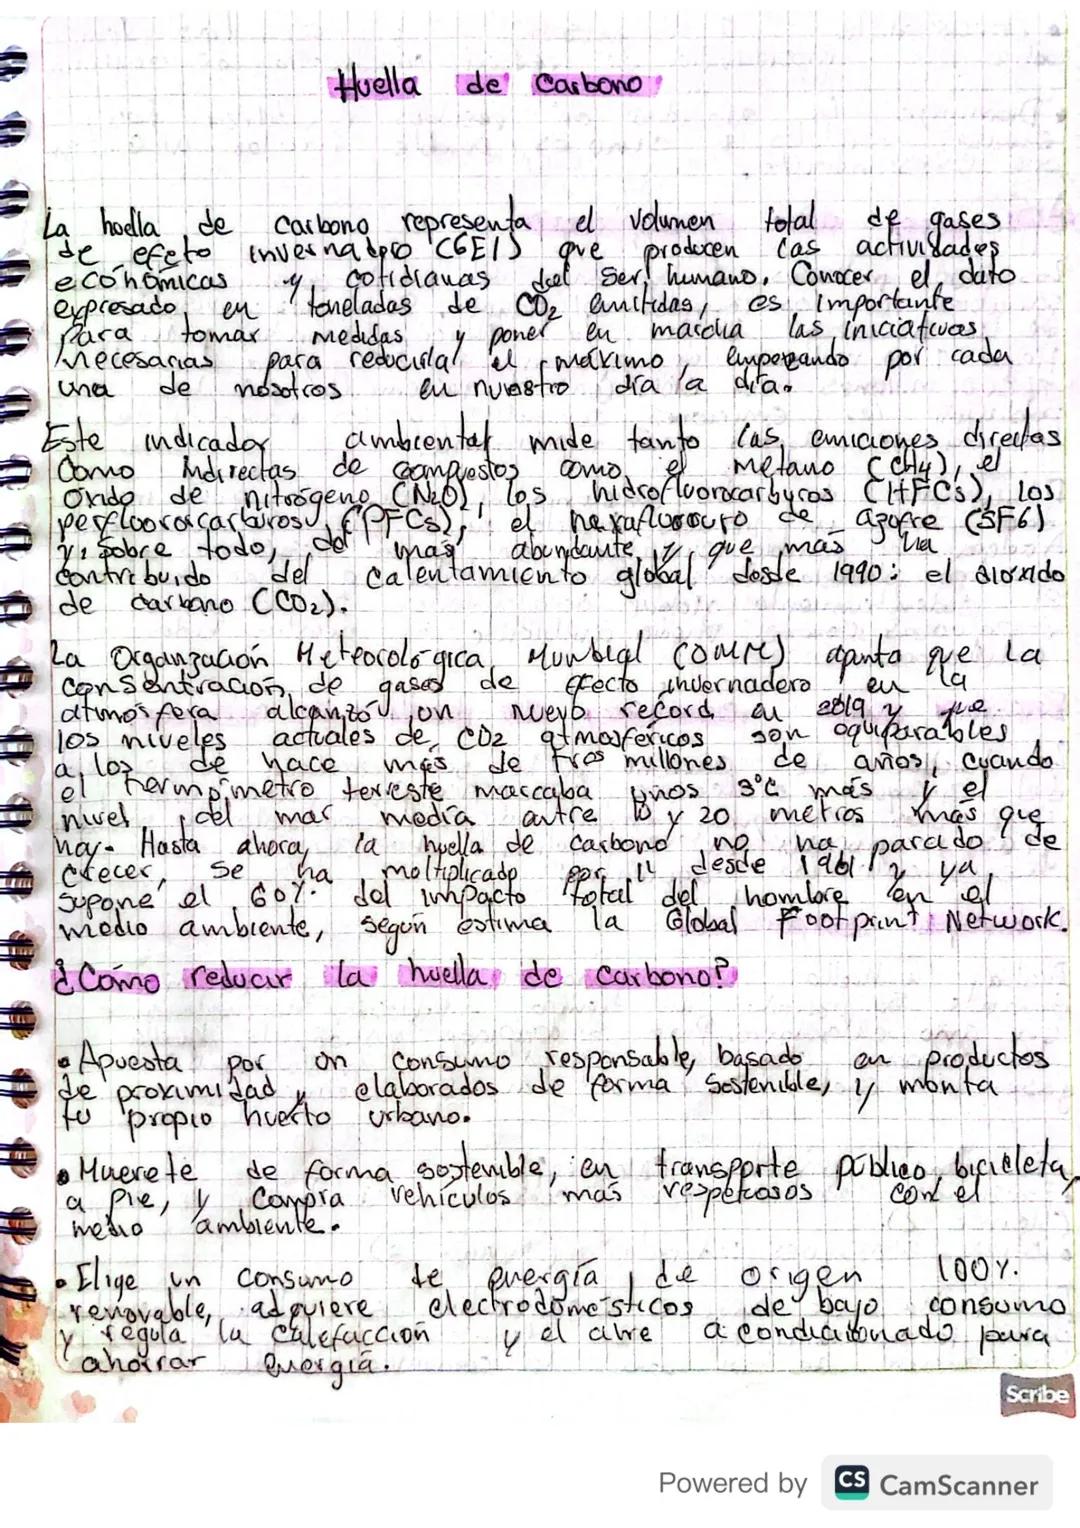 Huella de Carbono
La hoella de carbono representa el volumen total de gases
de efeto invernadero (GEI) que producen las actividades
económicas y cotidianas del ser humano. Conocer el dato
expresado en toneladas de CO2 emitidas, es importante
para tomar medidas y poner en marcha las iniciativas
necesarias para reducirla el máximo, empezando por cada
una de nosotros en nuestro día a día.
Este indicador ambiental mide tanto las emiciones directas
como indirectas de compuestos como el metano (CH4), el
oxido de nitrógeno (N2O), los hidrofluorocarburos (HFCs), los
perfluorocarburos (PFCs), el hexafluoruro de azufre (SF6)
y, sobre todo, del mas abundante y que más ha
contribuido del calentamiento global desde 1990: el dioxido
de carbono (CO2).
La Organización Meteorológica Mundial (OMM) apunta que la
consentración de gases de efecto invernadero en la
atmosfera alcanzó un nuevo record en 2019 y que
los niveles actuales de CO2 atmosféricos son equiparables
a los de hace más de tres millones de años, cuando
el termómetro terreste marcaba unos 3°C más y el
nivel del mar media entre 10 y 20 metros mas que
hoy. Hasta ahora, la huella de carbono no ha parado de
crecer, se ha moltiplicado por 11 desde 1961 y ya
supone el 60% del impacto total del hombre en el
medio ambiente, según estima la Global Footprint Network.
¿Cómo reducir la huella de carbono?
• Apuesta por un consumo responsable, basado en productos
de proximidad y elaborados de forma sostenible, y monta
tu propio huerto urbano.
• Muevete de forma sostenible, en transporte público, bicicleta,
a pie, y compra vehículos más respetosos con el
medio ambiente.
• Elige un consumo de energía de origen 100%
renovable, adquiere electrodomésticos de bajo consumo
y regula la calefacción y el aire acondicionado para
ahorrar energía.
Scribe
Powered by CS CamScanner